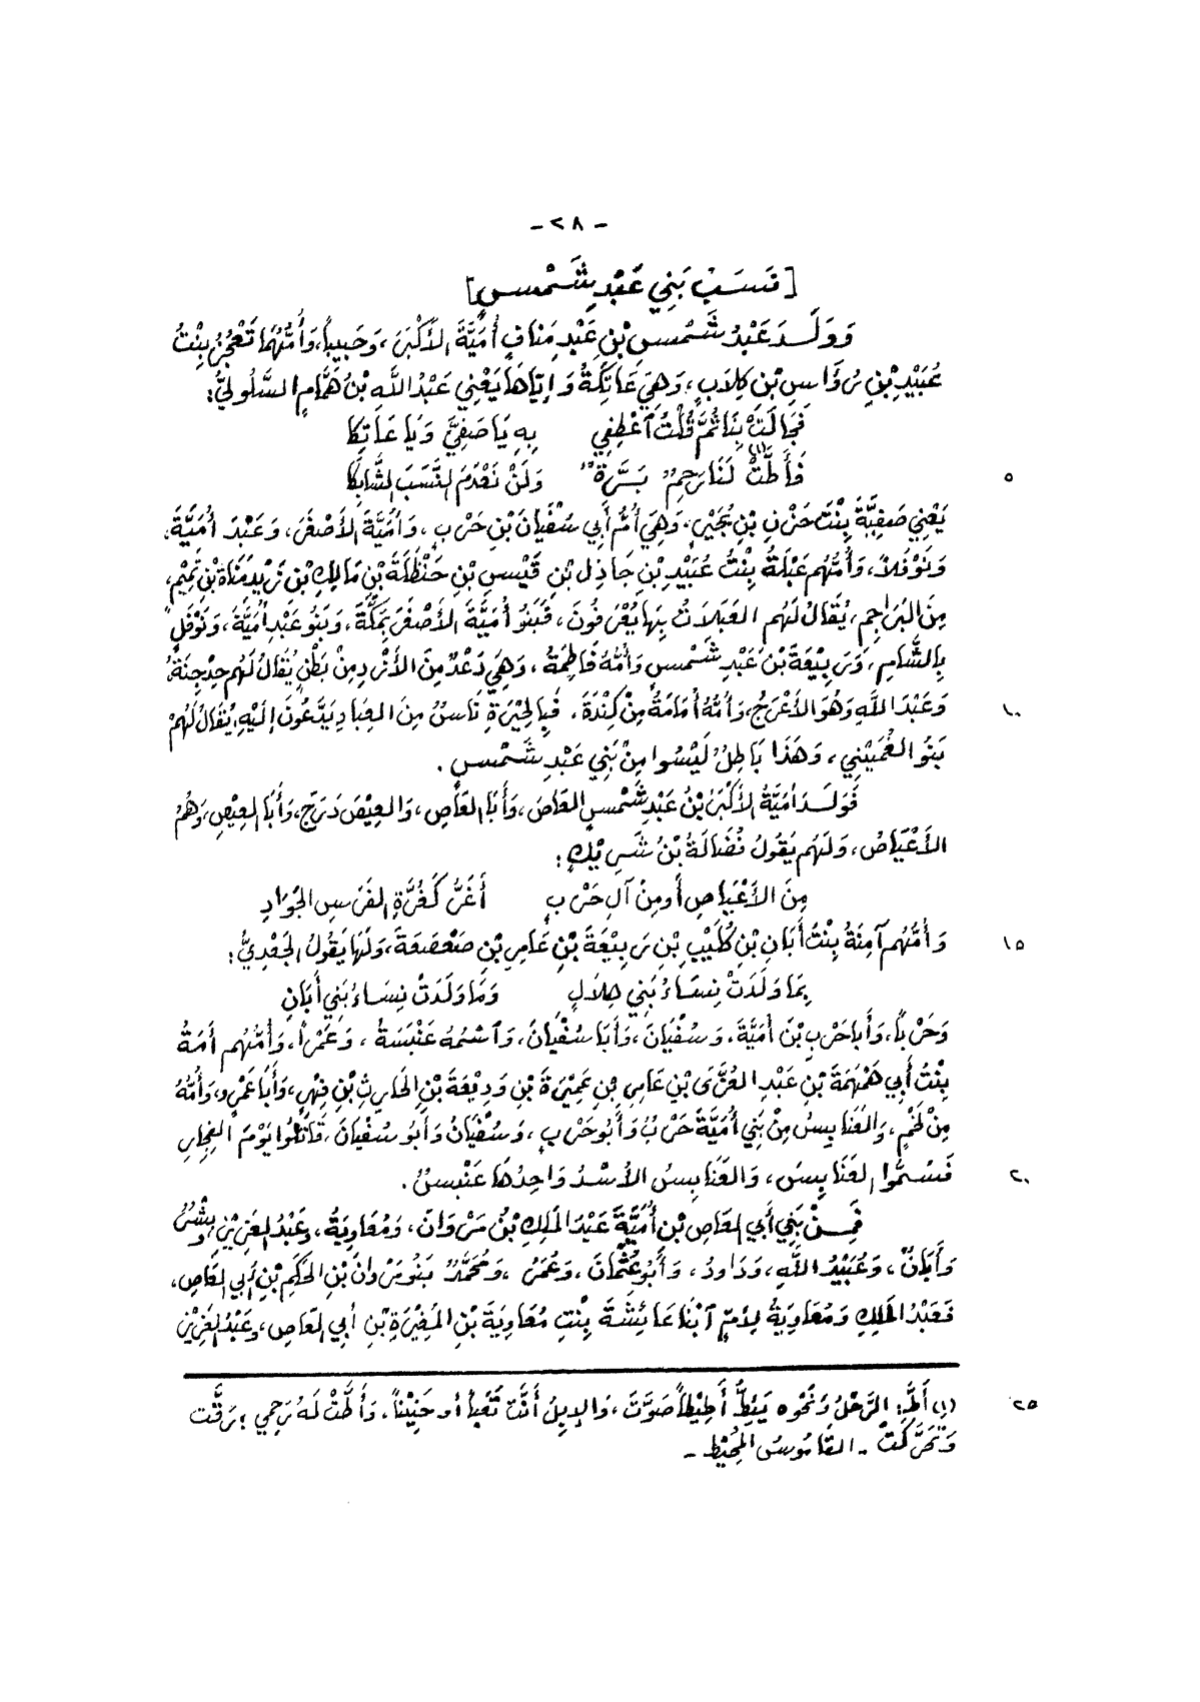 - ٢٨ -
[نَسَبُ بَنِي عَبْدِ شَمْسٍ]
وَوَلَدَ عَبْدُ شَمْسِ بْنِ عَبْدِ مَنَافٍ أُمَيَّةَ الأَكْبَرَ، وَحَبِيباً، وَأُمُّهُمَا تَعْجُزُ بِنْتُ
عُبَيْدِ بْنِ رُؤَاسِ بْنِ كِلَابٍ، وَهِيَ عَاتِكَةُ وَإِيَّاهَا يَعْنِي عَبْدُ اللَّهِ بْنُ هَمَّامٍ السَّلُولِيُّ:
فَجَالَتْ بِنَا ثُمَّ قُلْتُ آعْطِفِي بِهِ يَا صَفِيَّ وَيَا عَاتِكَا
٥ فَأَطَّتْ (١) لَنَا رَحِمٌ بَرَّةٌ وَلَنْ نَعْدَمَ النَّسَبَ الشَّابِكَا
يَعْنِي صَفِيَّةَ بِنْتَ حَزْنِ بْنِ بُجَيْرٍ، وَهِيَ أُمُّ أَبِي سُفْيَانَ بْنِ حَرْبٍ، وَأُمَيَّةَ الأَصْغَرَ، وَعَبْدَ أُمَيَّةَ،
وَنَوْفَلاً، وَأُمُّهُم عَبْلَةُ بِنْتُ عُبَيْدِ بْنِ جَاذِلِ بْنِ قَيْسِ بْنِ حَنْظَلَةَ بْنِ مَالِكِ بْنِ زَيْدِ مَنَاةَ بْنِ تَمِيْمٍ،
مِنَ البَرَاجِمِ، يُقَالُ لَهُم العَبَلَاتُ بِهَا يُعْرَفُونَ، فَبَنُو أُمَيَّةَ الأَصْغَرَ بِمَكَّةَ، وَبَنُو عَبْدِ أُمَيَّةَ، وَنَوْفَلٍ
بِالشَّامِ، وَرَبِيْعَةَ بْنَ عَبْدِ شَمْسٍ وَأُمُّهُ فَاطِمَةُ، وَهِيَ دَعْدٌ مِنَ الأَزْدِ مِنْ بَطْنٍ يُقَالُ لَهُم حِدْجِنَةُ،
١٠ وَعَبْدَ اللَّهِ وَهُوَ الأَعْرَجُ، وَأُمُّهُ أُمَامَةُ مِنْ كِنْدَةَ، فَبِالحِيْرَةِ نَاسٌ مِنَ العِبَادِ يَدَّعُونَ إِلَيْهِ، يُقَالُ لَهُمْ
بَنُو الغُمَيْنِي، وَهَذَا بَاطِلٌ لَيْسُوا مِنْ بَنِي عَبْدِ شَمْسٍ.
فَوَلَدَ أُمَيَّةُ الأَكْبَرُ بْنُ عَبْدِ شَمْسٍ العَاصَ، وَأَبَا العَاصِ، وَالعِيْصَ دَرَجَ، وَأَبَا العِيْصِ، وَهُمُ
الأَعْيَاصُ، وَلَهُم يَقُولُ فُضَالَةُ بْنُ شَرِيْكٍ:
مِنَ الأَعْيَاصِ أَو مِنْ آلِ حَرْبٍ أَغَرُّ كَغُرَّةِ الفَرَسِ الجَوَادِ
١٥ وَأُمُّهُم آمِنَةُ بِنْتُ أَبَانِ بْنِ كُلَيْبِ بْنِ رَبِيْعَةَ بْنِ عَامِرِ بْنِ صَعْصَعَةَ، وَلَهَا يَقُولُ الجَعْدِيُّ:
بِمَا وَلَدَتْ نِسَاءُ بَنِي هِلَالٍ وَمَا وَلَدَتْ نِسَاءُ بَنِي أَبَانِ
وَحَرْباً، وَأَبَا حَرْبِ بْنَ أُمَيَّةَ، وَسُفْيَانَ، وَأَبَا سُفْيَانَ، وَآسْمُهُ عَنْبَسَةُ، وَعَمْراً، وَأُمُّهُم أَمَةُ
بِنْتُ أَبِي هَمْهَمَةَ بْنِ عَبْدِ العُزَّى بْنِ عَامِرِ بْنِ عَمِيْرَةَ بْنِ وَدِيْعَةَ بْنِ الحَارِثِ بْنِ فِهْرٍ، وَأَبَا عَمْرٍو، وَأُمُّهُ
مِنْ لَخْمٍ، وَالعَنَابِسُ مِنْ بَنِي أُمَيَّةَ حَرْبُ وَأَبُو حَرْبٍ، وَسُفْيَانُ وَأَبُو سُفْيَانَ، قَاتَلُوا يَوْمَ الفِجَارِ
٢٠ فَسُمُّوا العَنَابِسَ، وَالعَنَابِسُ الأُسْدُ وَاحِدُهَا عَنْبَسٌ.
فَمِنْ بَنِي أَبِي العَاصِ بْنِ أُمَيَّةَ عَبْدُ المَلِكِ بْنُ مَرْوَانَ، وَمُعَاوِيَةُ، وَعَبْدُ العَزِيْزِ، وَبِشْرٌ
وَأَبَانٌ، وَعُبَيْدُ اللَّهِ، وَدَاودُ، وَأَبُو عُثْمَانَ، وَعُمَرُ، وَمُحَمَّدٌ بَنُو مَرْوَانَ بْنِ الحَكَمِ بْنِ أَبِي العَاصِ،
فَعَبْدُ المَلِكِ وَمُعَاوِيَةُ لِأُمٍّ آبْنَا عَائِشَةَ بِنْتِ مُعَاوِيَةَ بْنِ المُغِيْرَةِ بْنِ أَبِي العَاصِ، وَعَبْدُ العَزِيْزِ
٢٥ (١) أَطَّ: الرَّحْلُ وَنَحْوه يَئِطُّ أَطِيْطاً صَوَّتَ، وَالإِبِلُ أَنَّتْ تَعَباً أو حَنِيْناً، وَأَطَّتْ لَهُ رَحِمِي: رَقَّتْ
وَتَحَرَّكَتْ. - القَامُوسُ المُحِيْطُ -